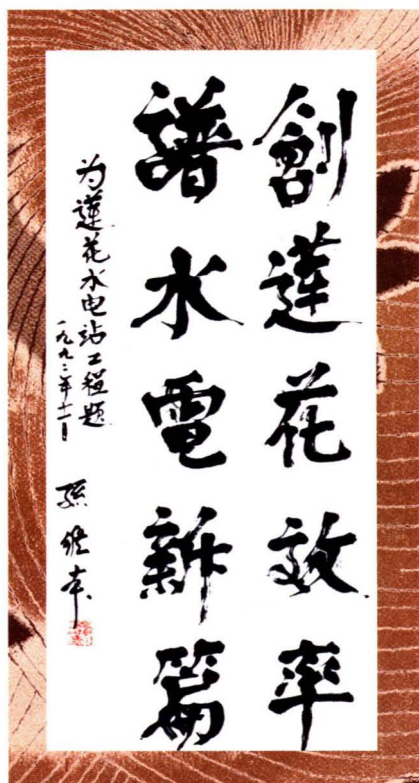 創蓮花效率
譜水電新篇
为蓮花水电站工程题
一九九二年十一月
孫維本